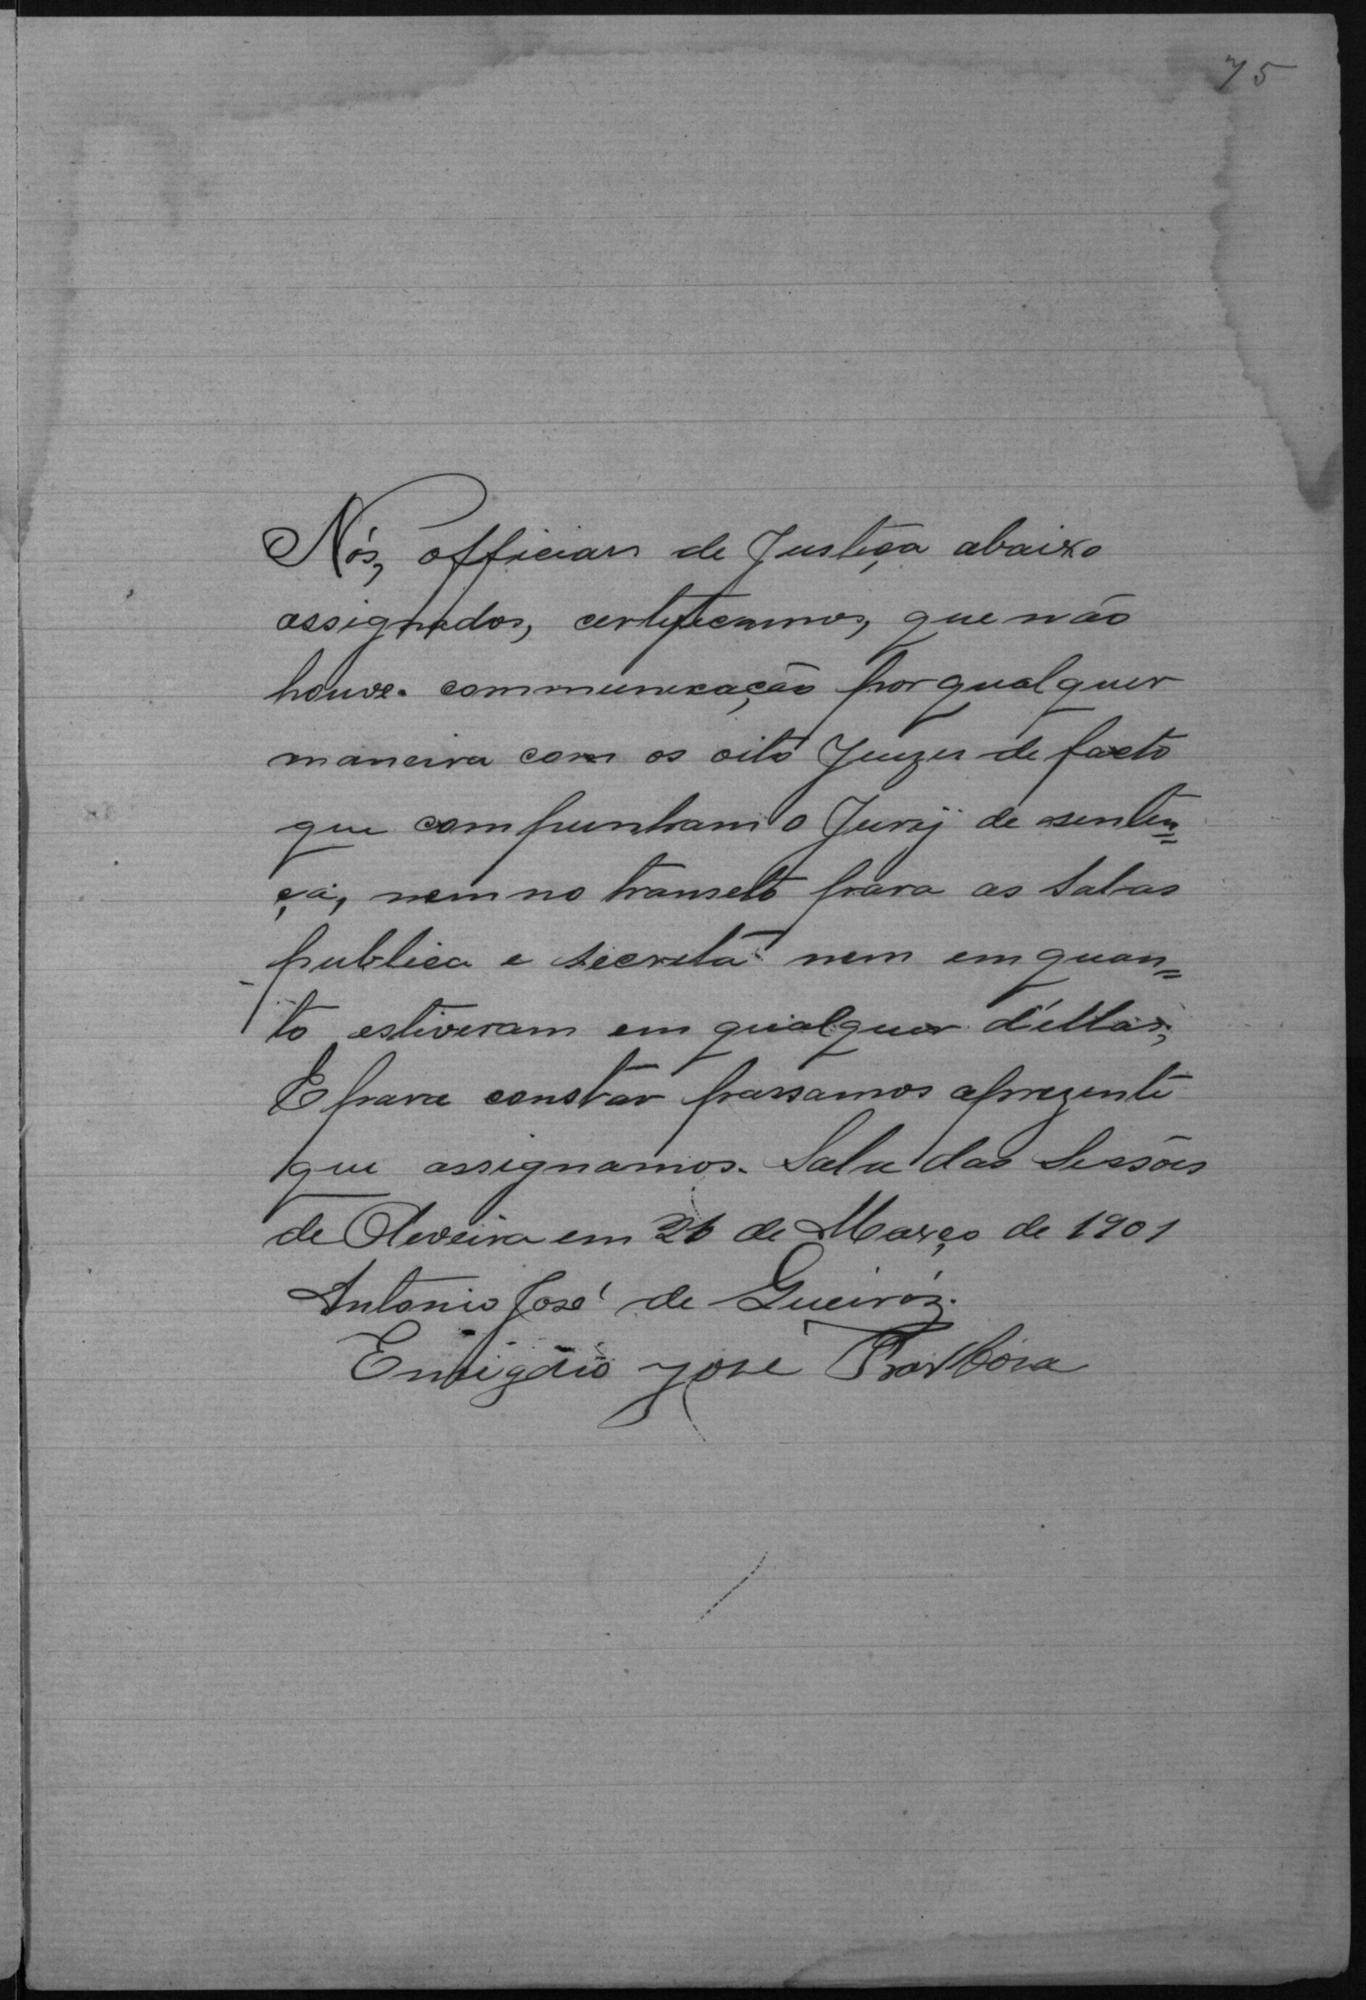 75
Nós, officiaes de Justiça abaixo
assignados, certificamos, que não
houve communicação por qualquer
maneira com os oito Juizes de facto
que compunham o Jury de senten=
ça, nem no transeto para as Salas
publica e secreta nem emquan=
to estiveram em qualquer d'ellas;
E para constar passamos aprezente
que assignamos. Sala das Sessões
de Oliveira em 26 de Março de 1901
Antonio José de Queiróz.
Emigdio José Barbosa